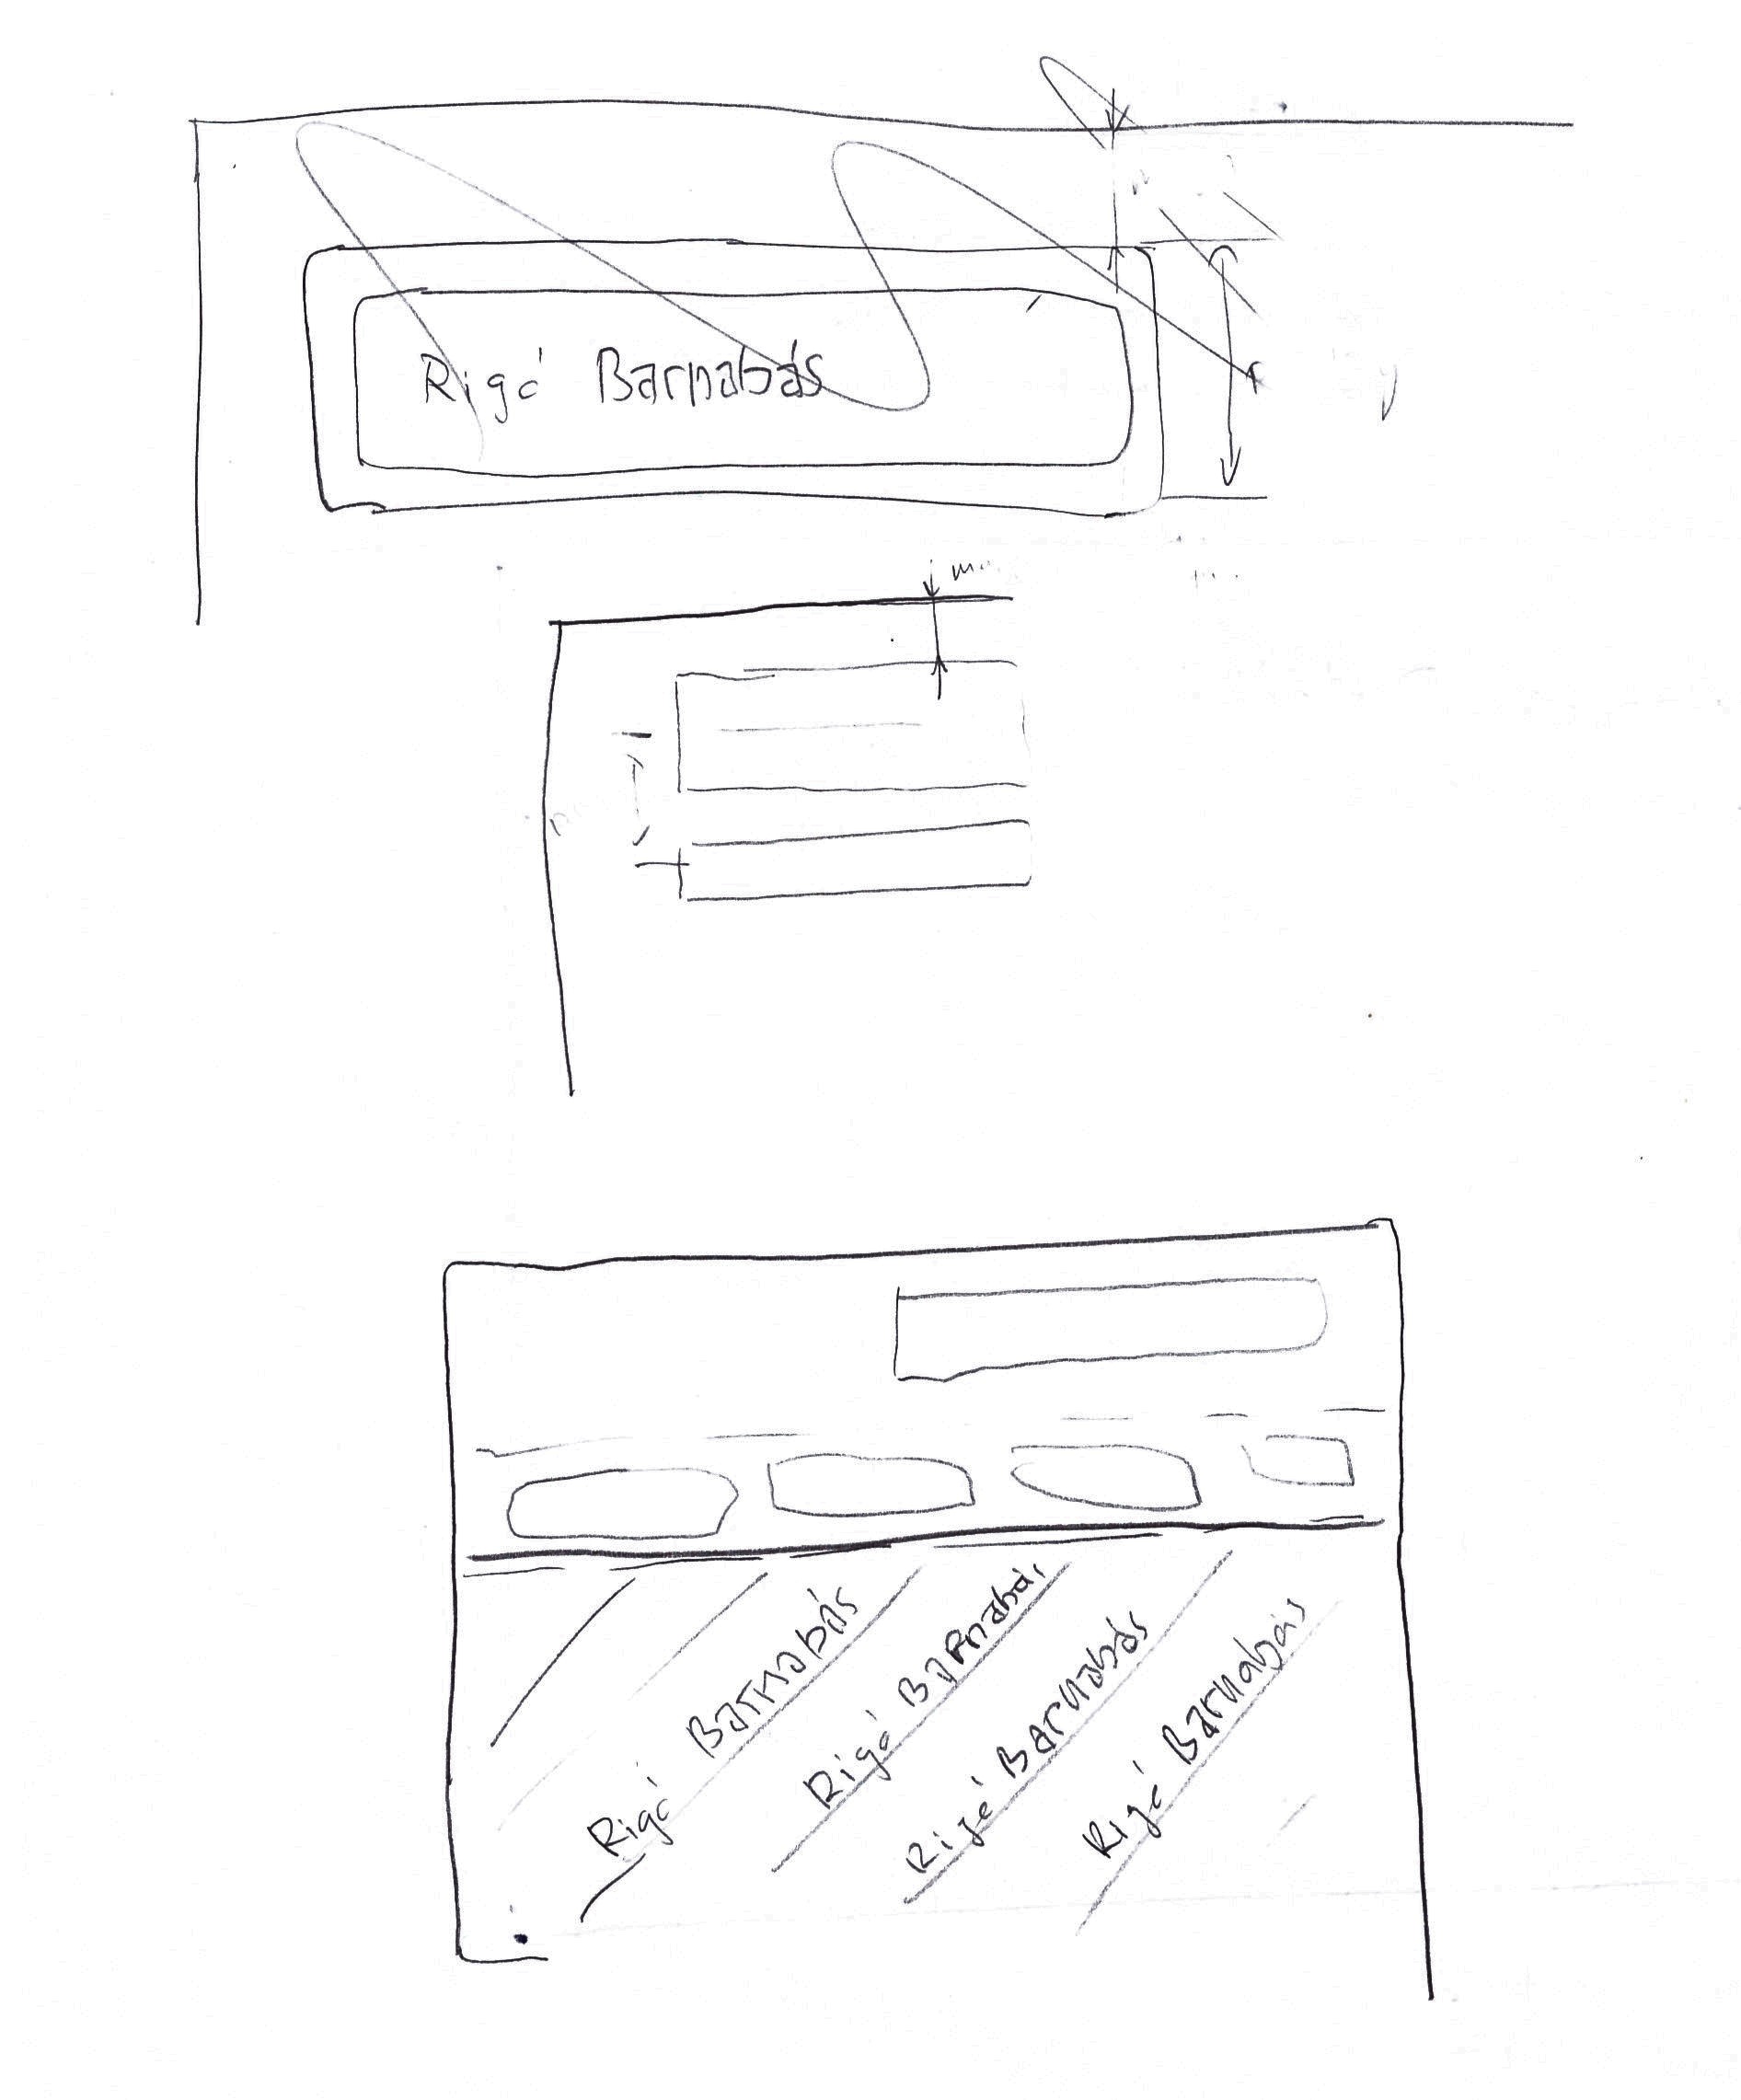 Rigó Barnabás
Rigó Barnabás
Rigó Barnabás
Rigó Barnabás
Rigó Barnabás